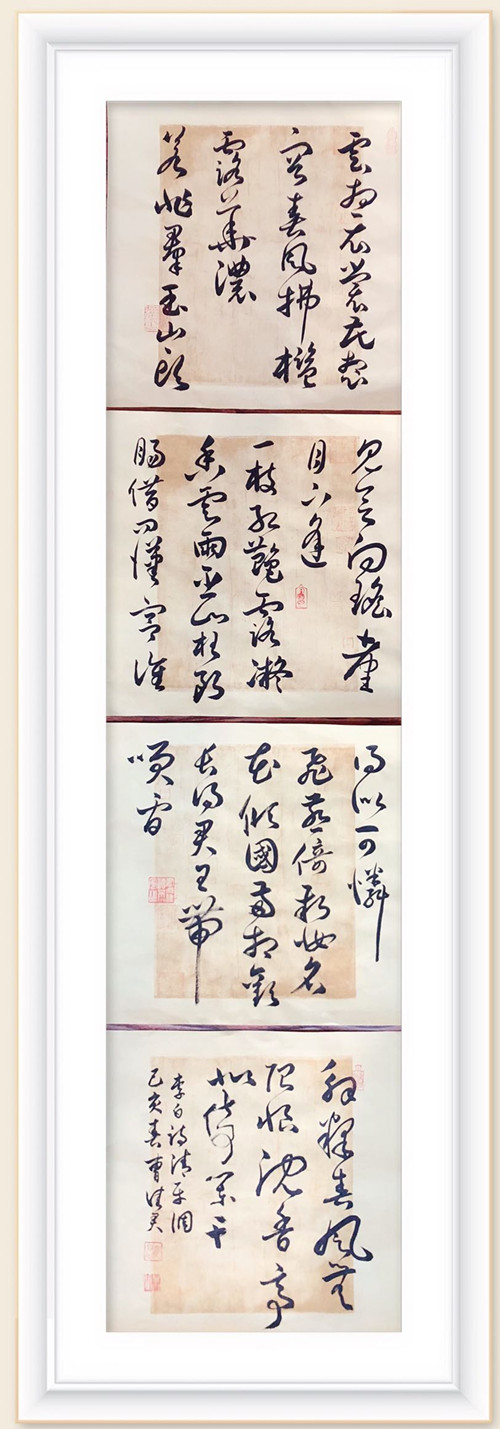 雲想衣裳花想
容春風拂檻
露華濃
若非羣玉山頭
見會向瑤臺
月下逢
一枝紅艷露凝
香雲雨巫山枉斷
腸借問漢宮誰
得似可憐
飛燕倚新妝名
花傾國兩相歡
長得君王帶
笑看
解釋春風無
限恨沈香亭
北倚闌干
李白詩清平調
己亥春曹